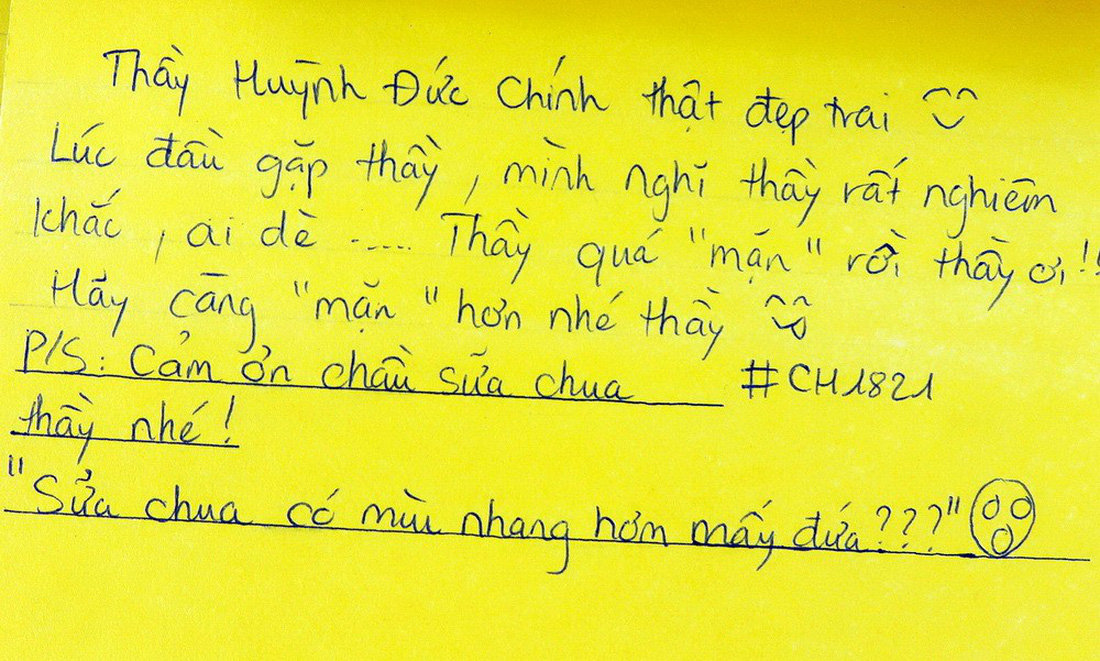 Thầy Huỳnh Đức Chính thật đẹp trai
Lúc đầu gặp thầy, mình nghĩ thầy rất nghiêm
khắc, ai dè ...... Thầy quá "mặn" rồi thầy ơi!!
Hãy càng "mặn" hơn nhé thầy
P/S: Cảm ơn chầu sữa chua #CH1821
thầy nhé!
"Sữa chua có mùi nhang hơm mấy đứa???"